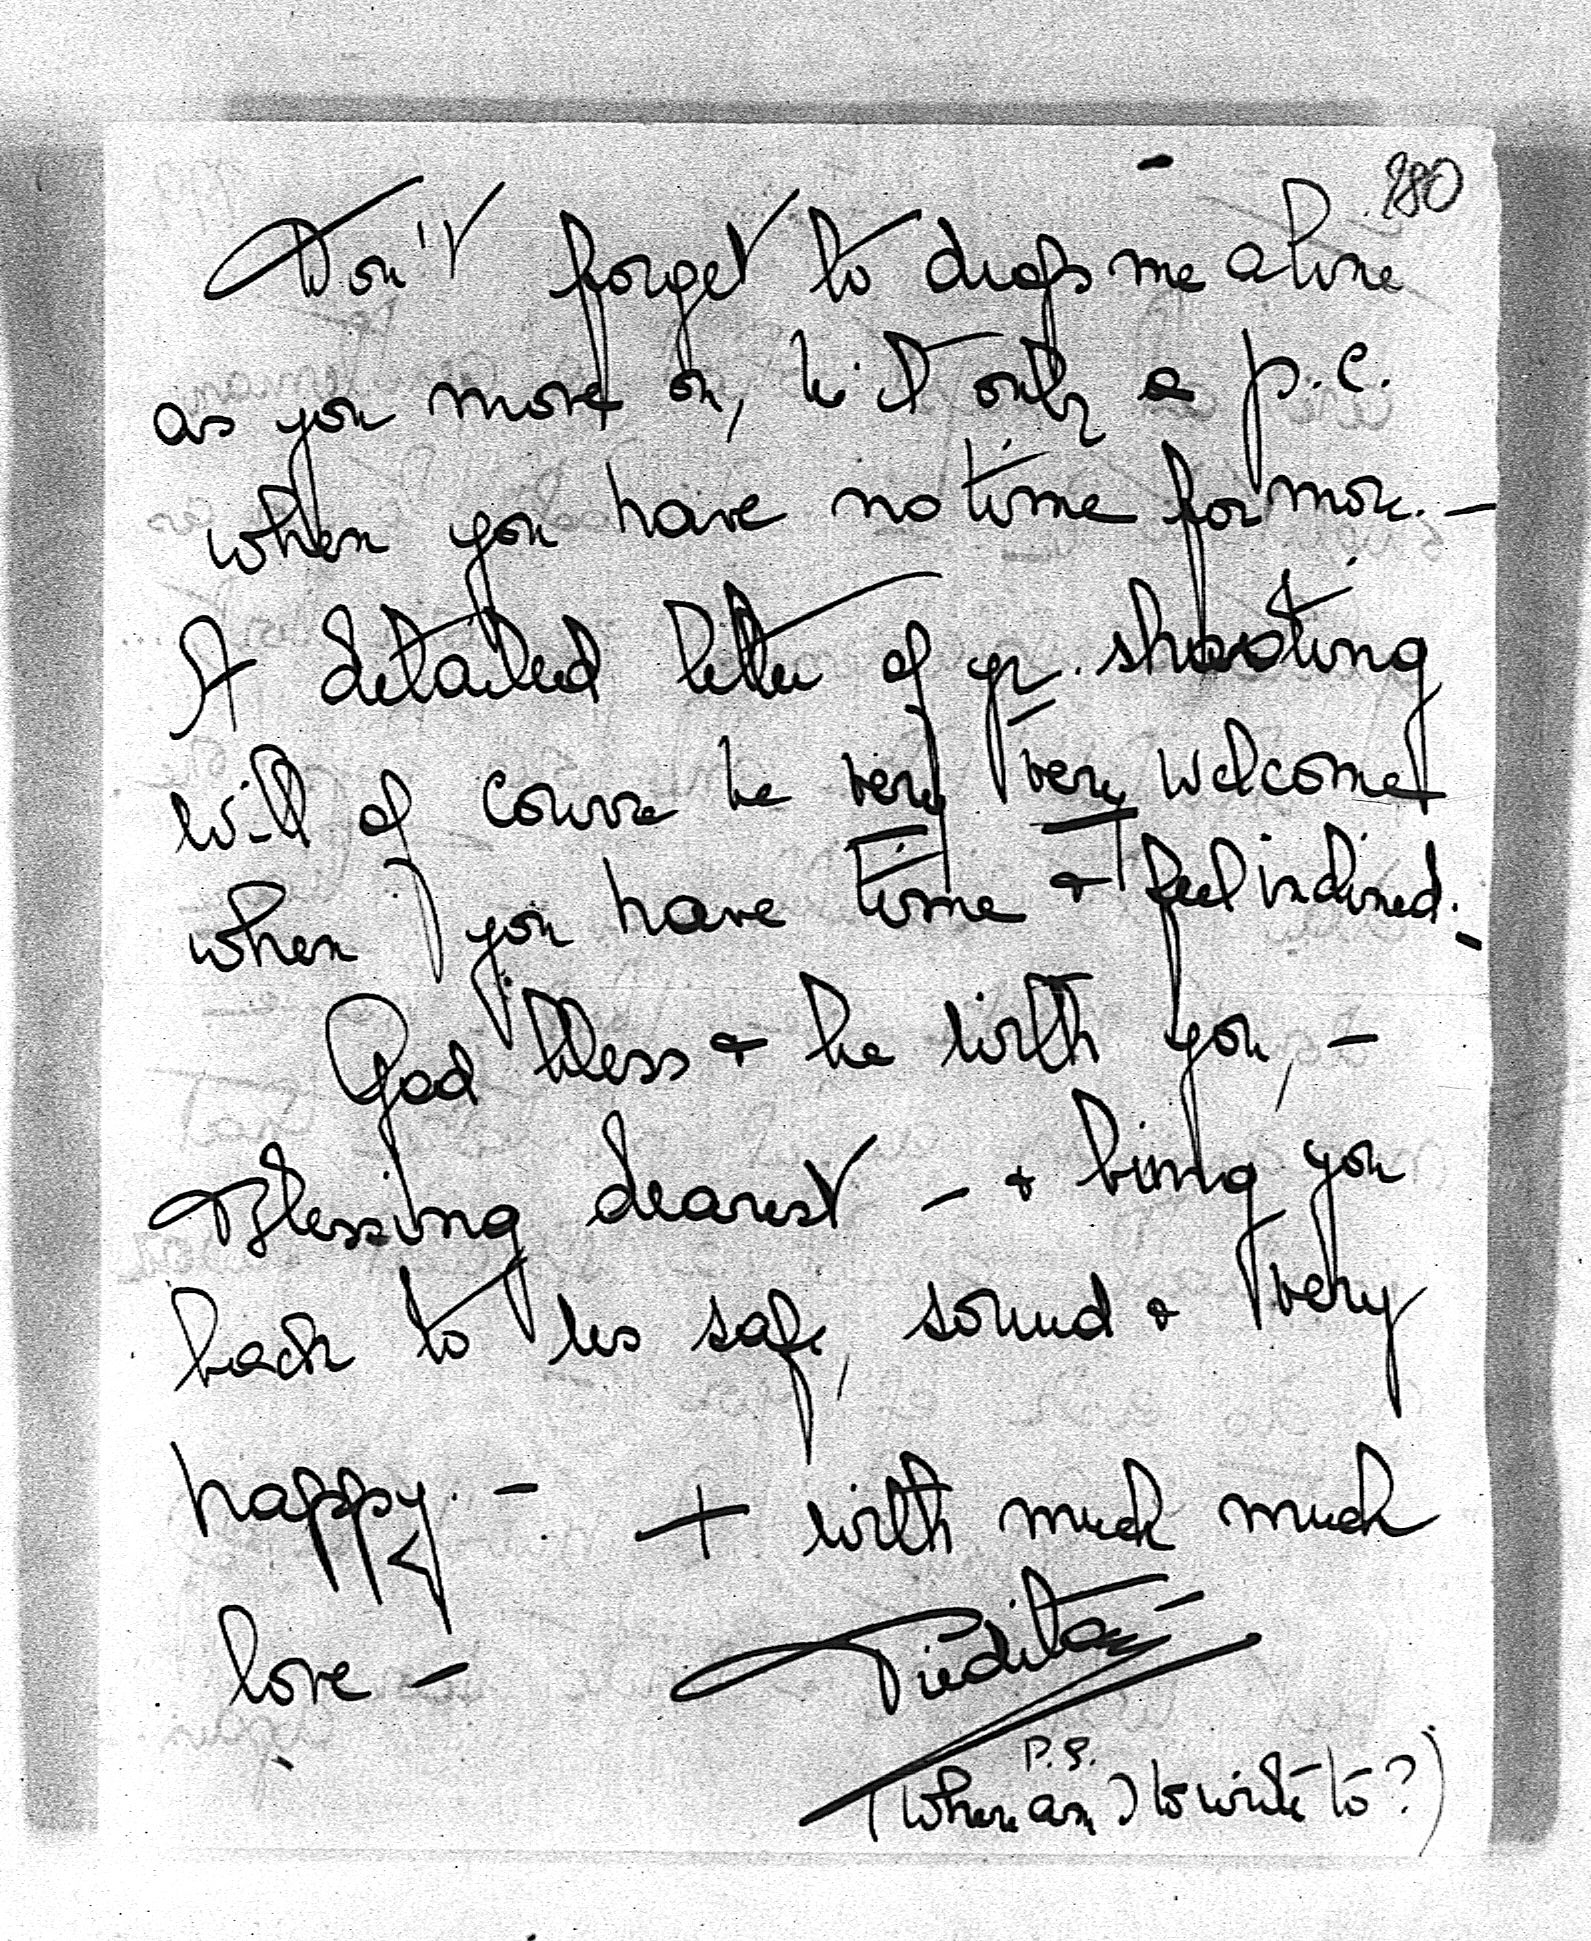 280
Don't forget to drop me a line
as you move on, be it only a p.c.
when you have no time for more. -
A detailed letter of yr. shooting
will of course be very very welcome
when you have time & feel inclined. -
God bless & be with you, -
Blessing dearest - & bring you
back to us safe, sound & very
happy. - + with much much
love -
P.S.
(Where am I to write to?)